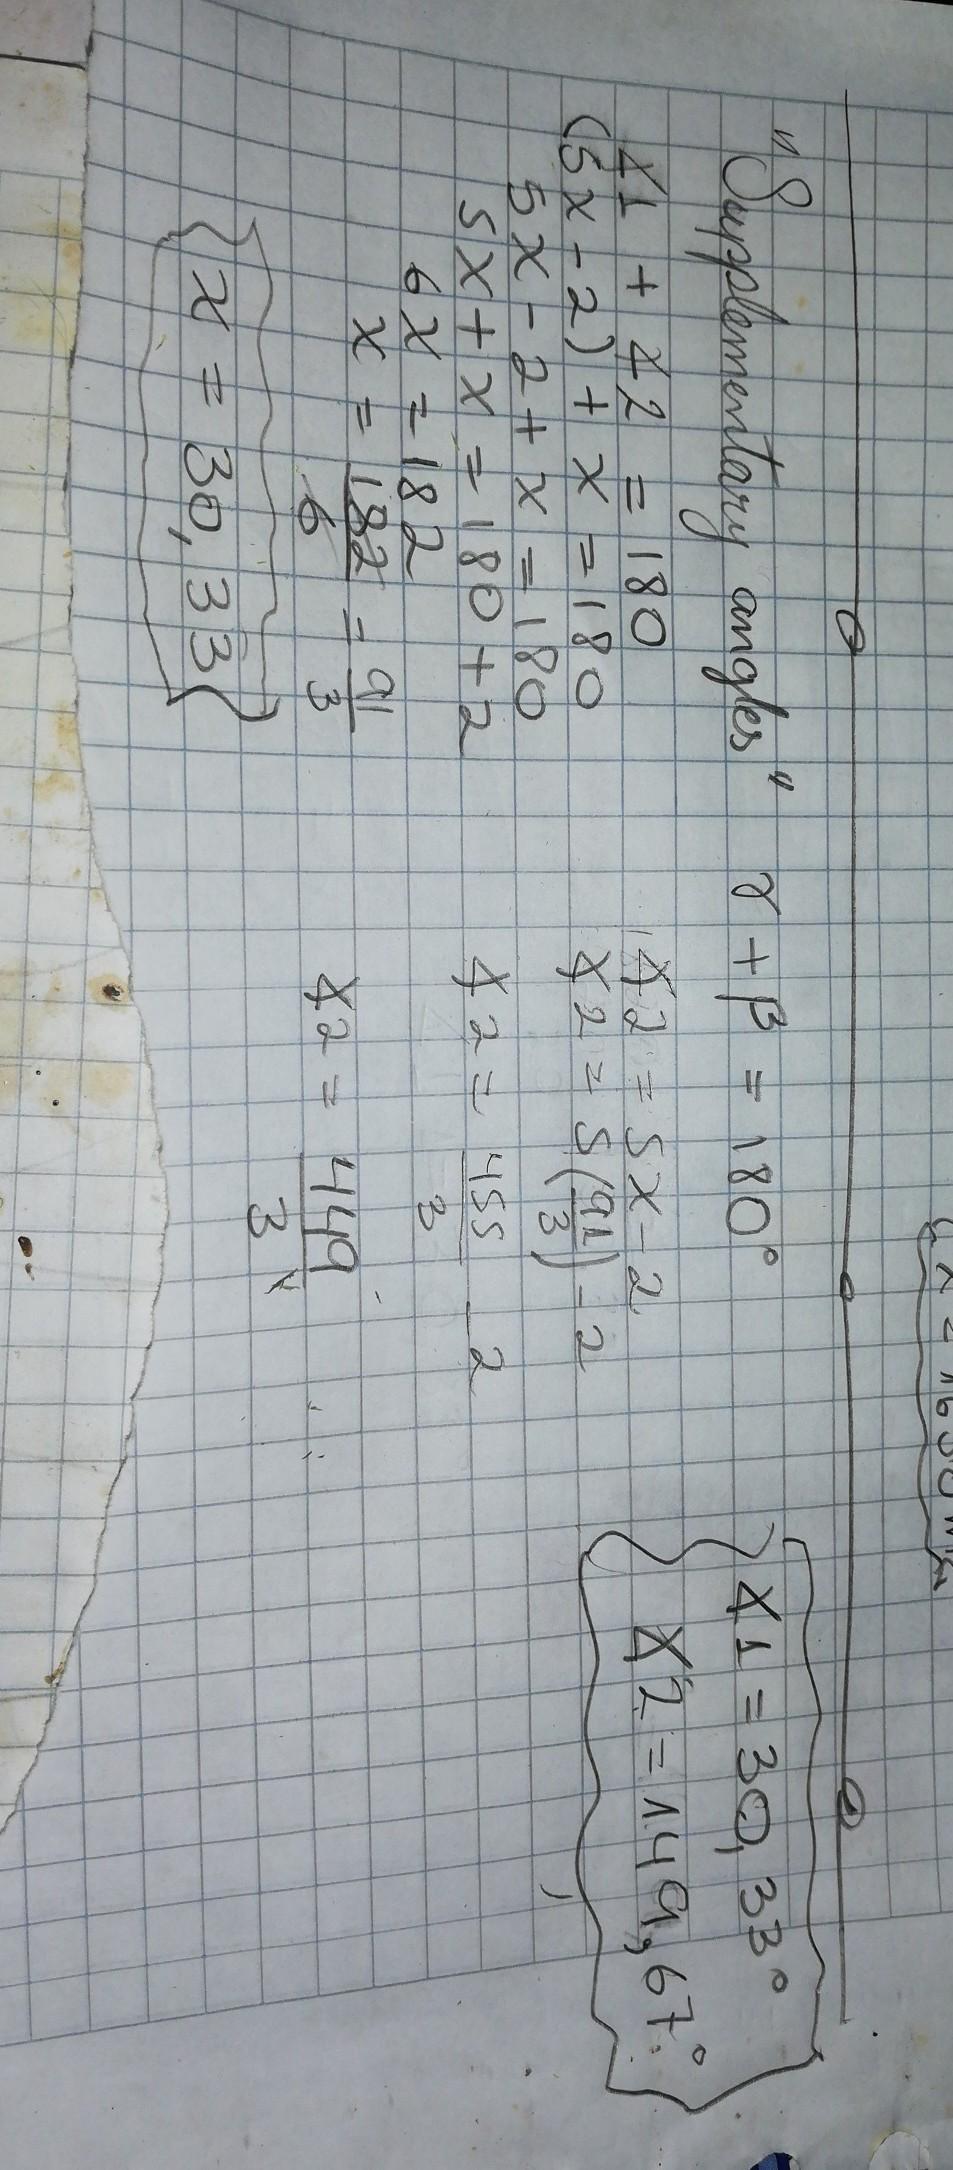 "Supplementary angles" γ + β = 180°
∡1 + ∡2 = 180
(5x - 2) + x = 180
5x - 2 + x = 180
5x + x = 180 + 2
6x = 182
x = 182/6 = 91/3
x = 30,33
∡2 = 5x - 2
∡2 = 5(91/3) - 2
∡2 = 455/3 - 2
∡2 = 449/3
∡1 = 30,33°
∡2 = 149,67°